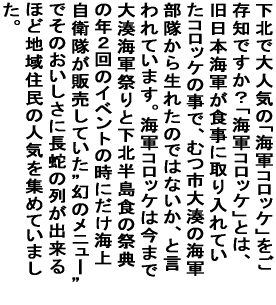 下北で大人気の「海軍コロッケ」をご
存知ですか?「海軍コロッケ」とは、
旧日本海軍が食事に取り入れてい
たコロッケの事で、むつ市大湊の海軍
部隊から生れたのではないか、と言
われています。海軍コロッケは今まで
大湊海軍祭りと下北半島食の祭典
の年2回のイベントの時にだけ海上
自衛隊が販売していた"幻のメニュー"
でそのおいしさに長蛇の列が出来る
ほど地域住民の人気を集めていまし
た。